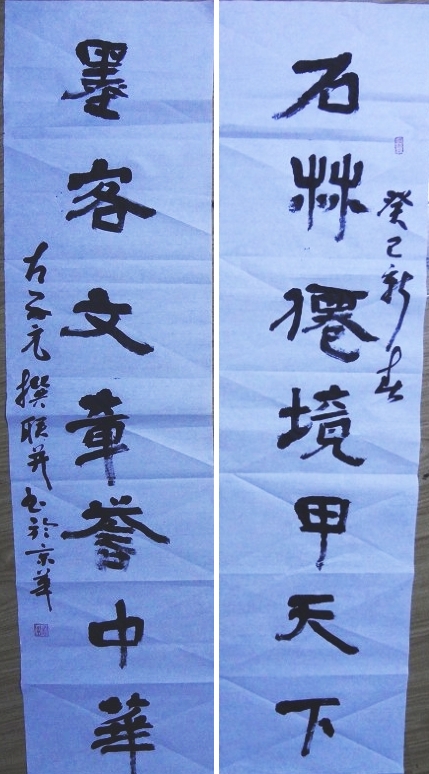 癸巳新春
石林僊境甲天下
墨客文章誉中華
元撰联并书於京華